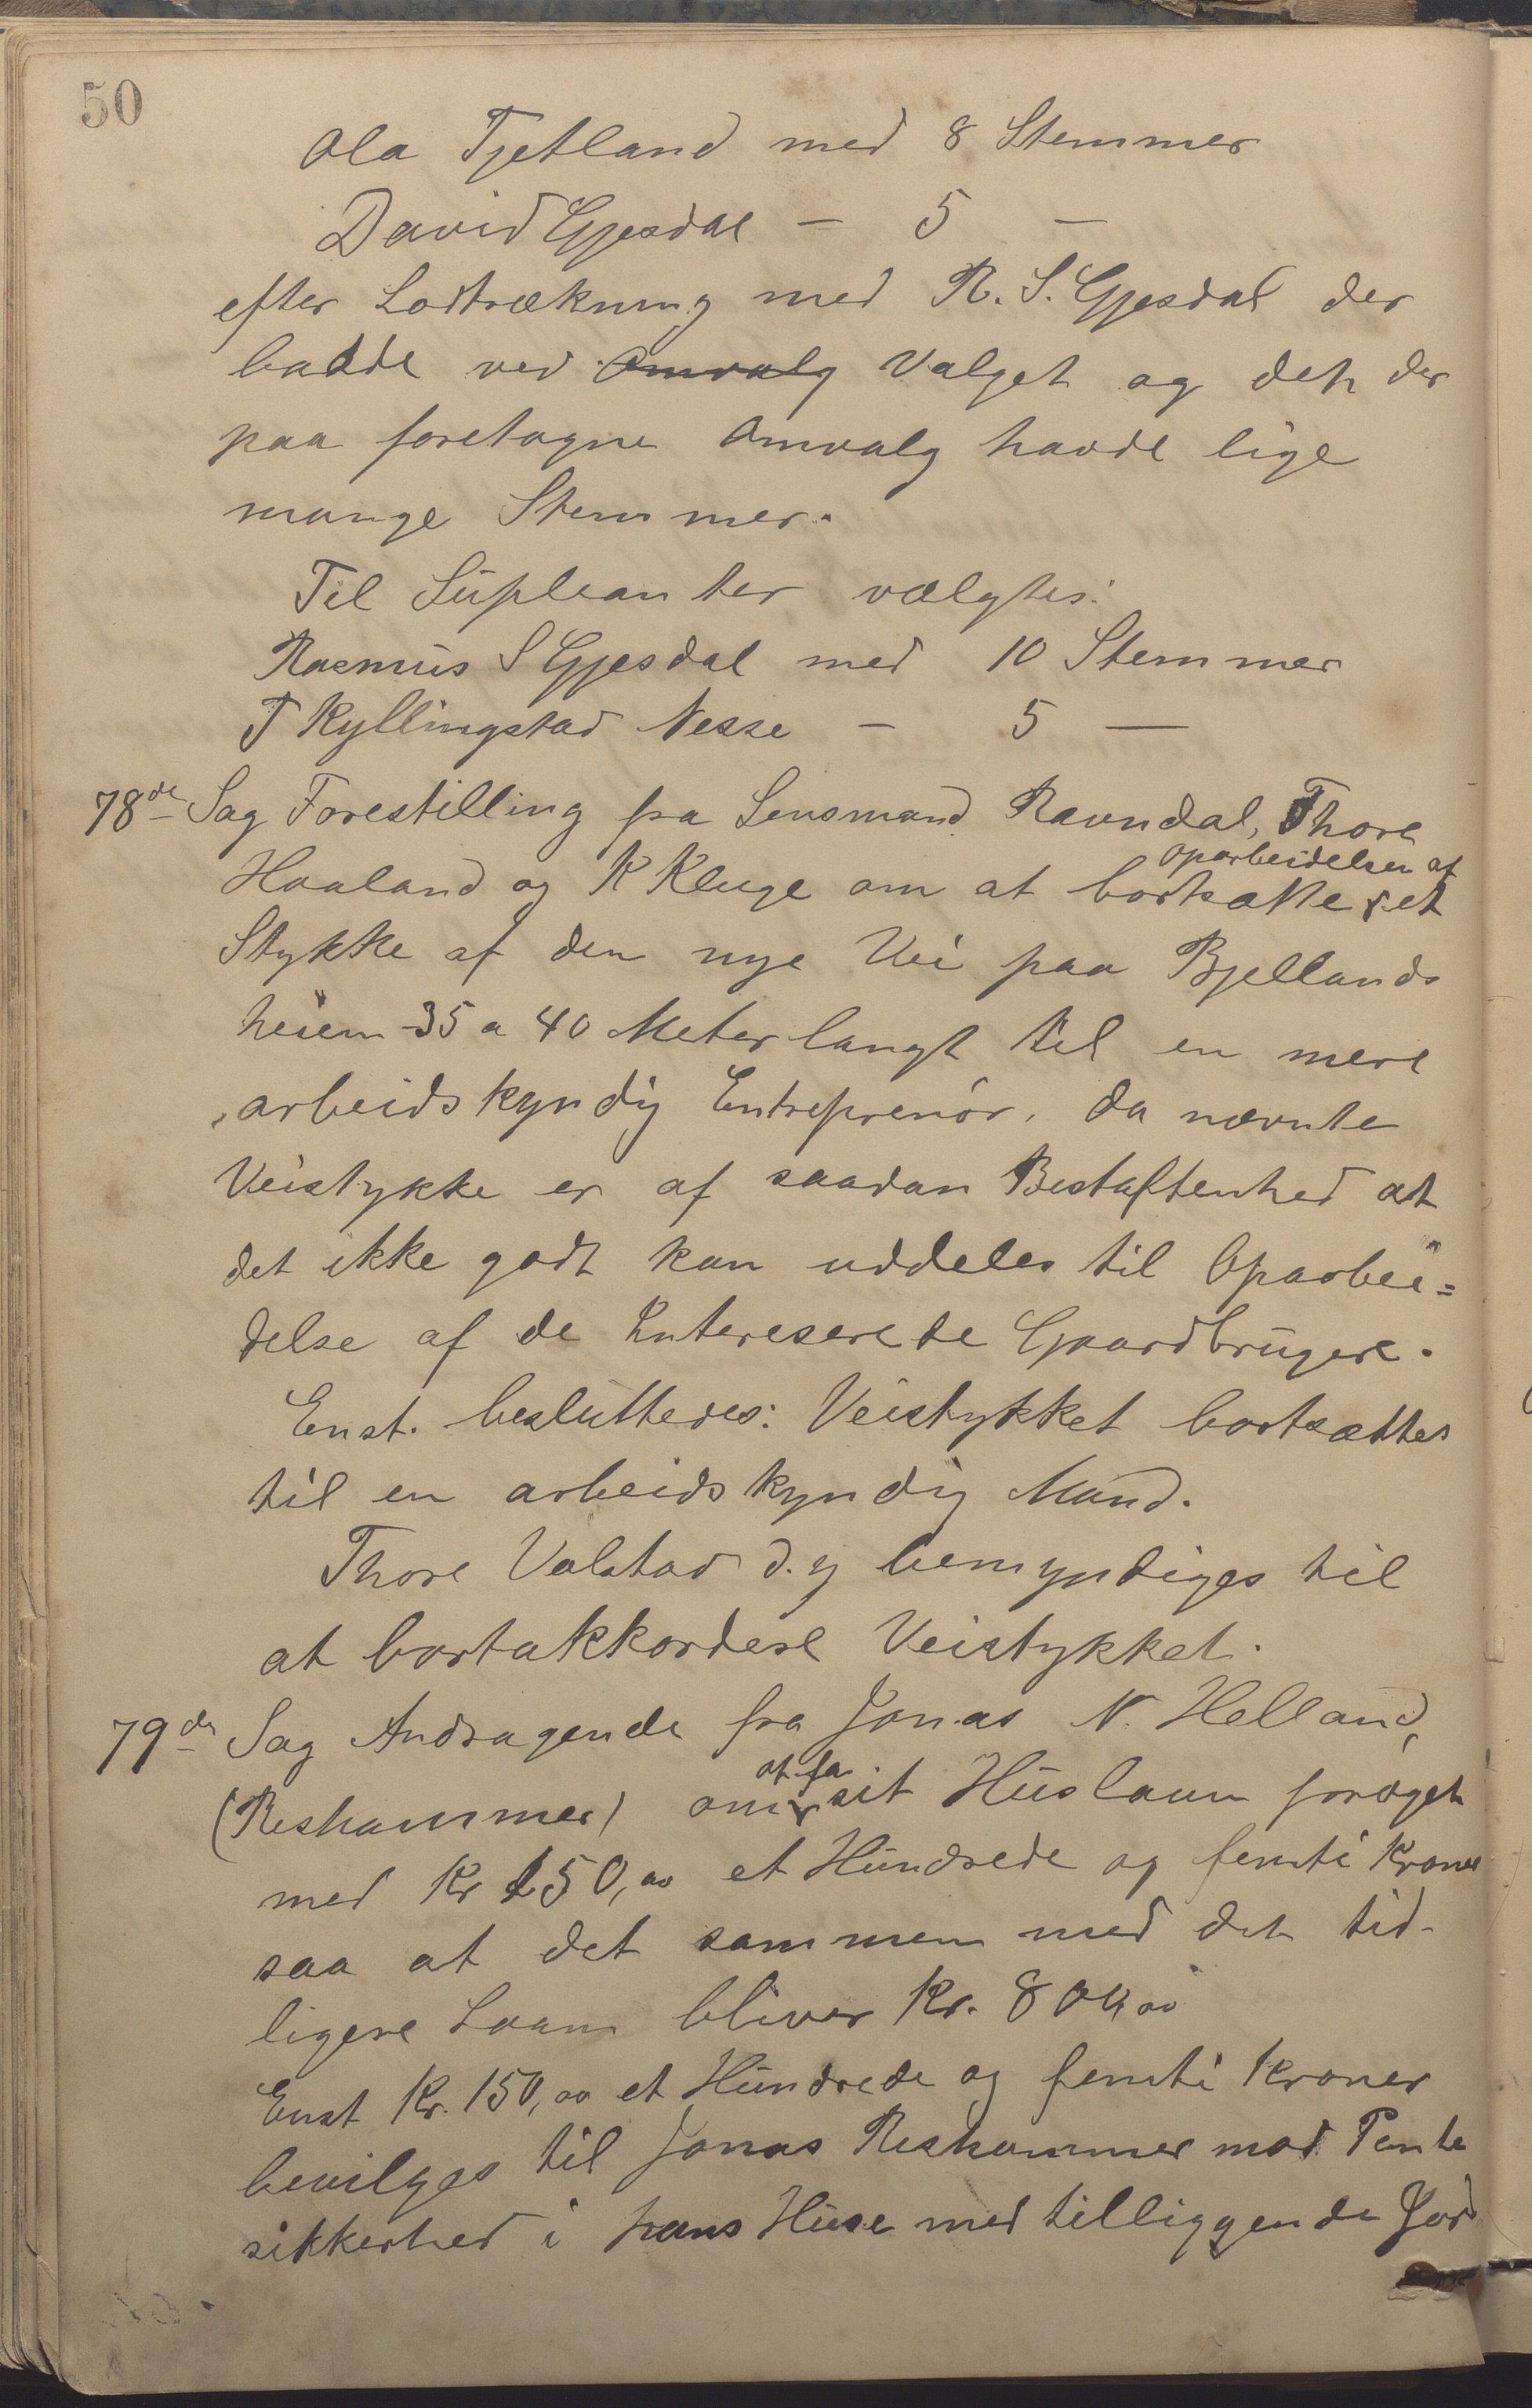 50
Ola Tjetland med 8 Stemmer
David Gjesdal - 5 -
efter Lodtrækning med R. S. Gjesdal der
badde ved Omvalg Valget og det der
paa foretagne Omvalg havde lige
mange Stemmer.
Til Supleanter vælgtes:
Rasmus S Gjesdal med 10 Stemmer
T Kyllingstad Nesse - 5 -
78de Sag Forestilling fra Lensmand Ravndal, Thore
Haaland og K Kluge om at bortsætte oparbeidelsen af et
Stykke af den nye Vei paa Bjellands
heien 35 a 40 Meter langt til en mere
arbeidskyndig Entreprenør, da nævnte
Veistykke er af saadan Bestaftenhed at
det ikke godt kan uddeles til Oparbei=
delse af de Interesserede Gaardbrugere.
Enst. besluttedes: Veistykket bortsættes
til en arbeidskyndig Mand.
Thore Valstad d.y bemyndiges til
at bortakkordere Veistykket.
79de Sag Andragende fra Jonas N. Helland,
(Reshammer) om at faa sit Huslaan forøget
med Kr 150,00 et Hundrede og femti Kroner
saa at det sammen med det tid-
ligere Laan bliver Kr. 800,00
Enst Kr. 150,00 et Hundrede og femti Kroner
bevilges til Jonas Reshammer mod Pante
sikkerhed i hans Huse med tilliggende Jord